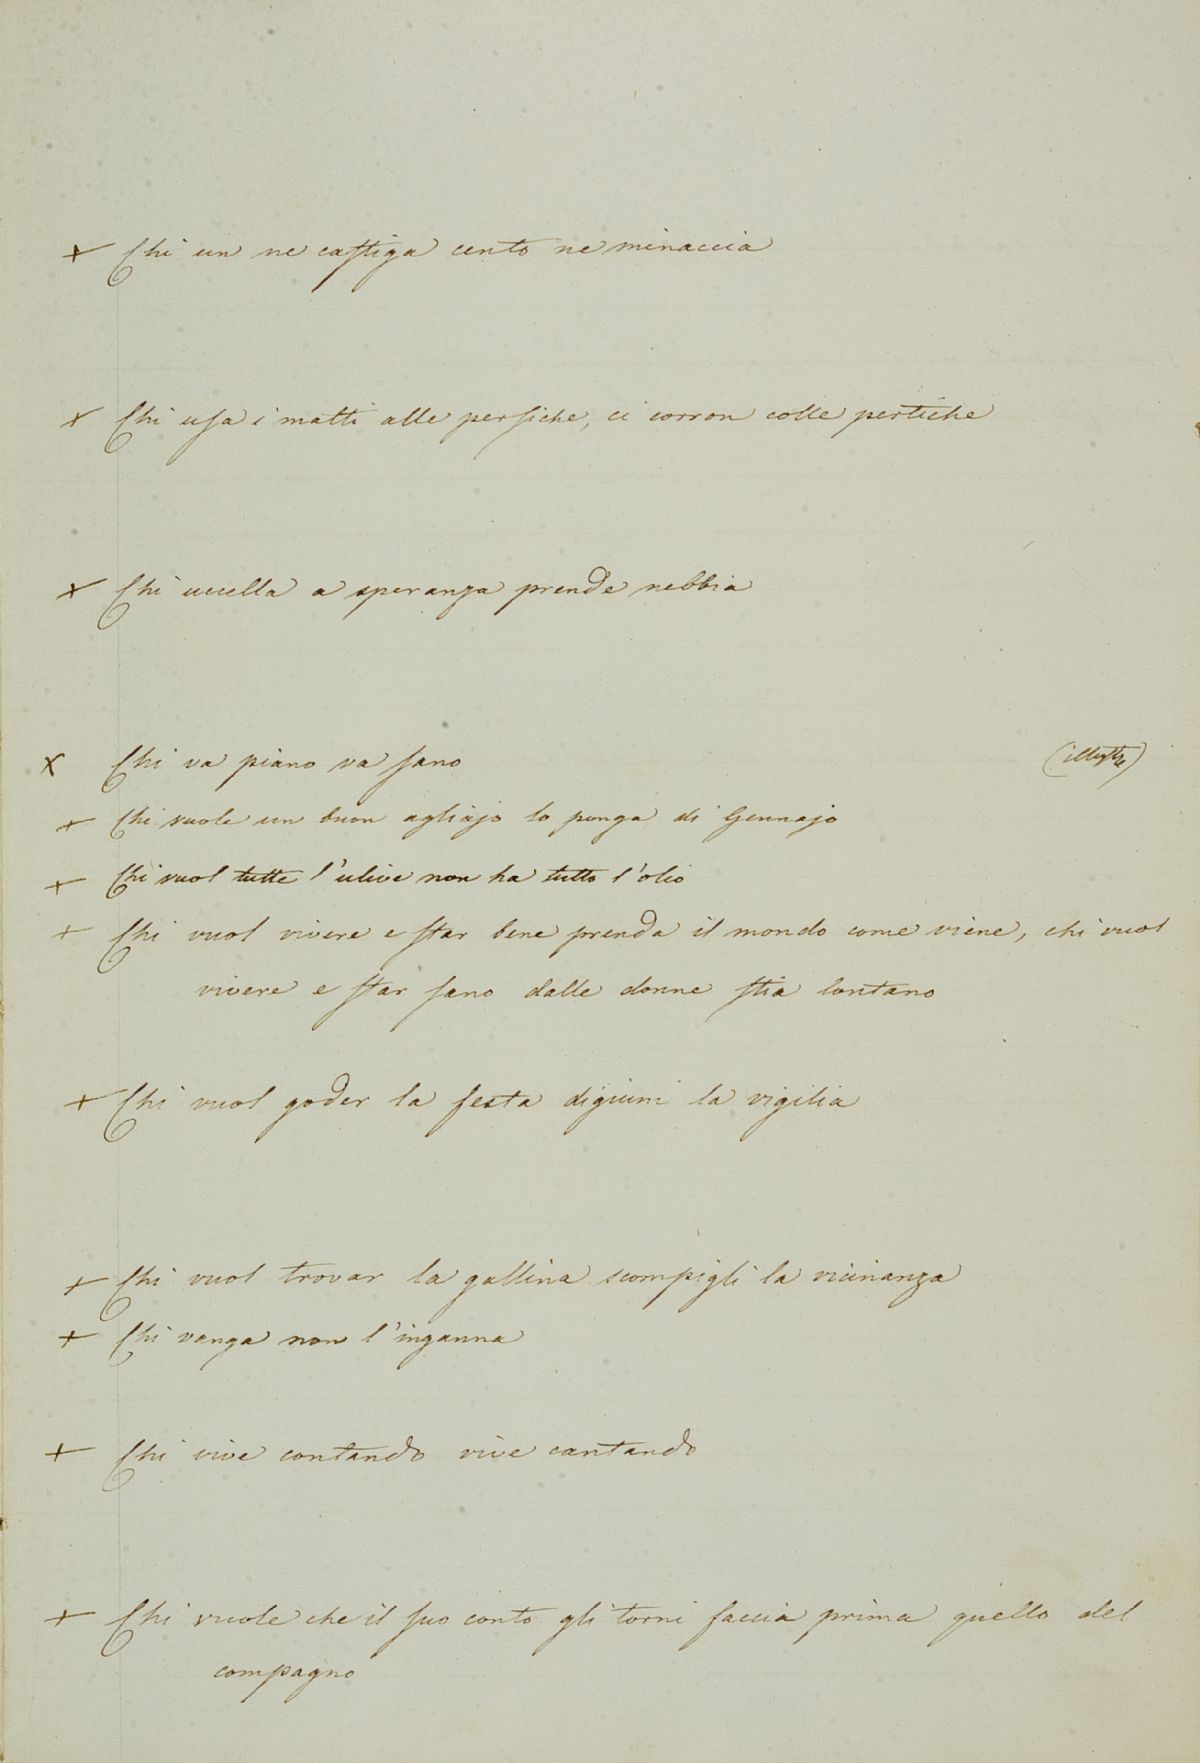 + Chi un ne castiga cento ne minaccia
+ Chi usa i matti alle persiche, ci corron colle pertiche
+ Chi uccella a speranza prende nebbia
x Chi va piano va sano
+ Chi vuole un buon agliajo lo ponga di Gennajo
+ Chi vuol tutte l'ulive non ha tutto l'olio
+ Chi vuol vivere e star bene prenda il mondo come viene, chi vuol
vivere e star sano dalle donne stia lontano
+ Chi vuol goder la festa digiuni la vigilia
+ Chi vuol trovar la gallina scompigli la vicinanza
+ Chi vanga non l'inganna
+ Chi vive contando vive cantando
+ Chi vuole che il suo conto gli torni faccia prima quello del
compagno